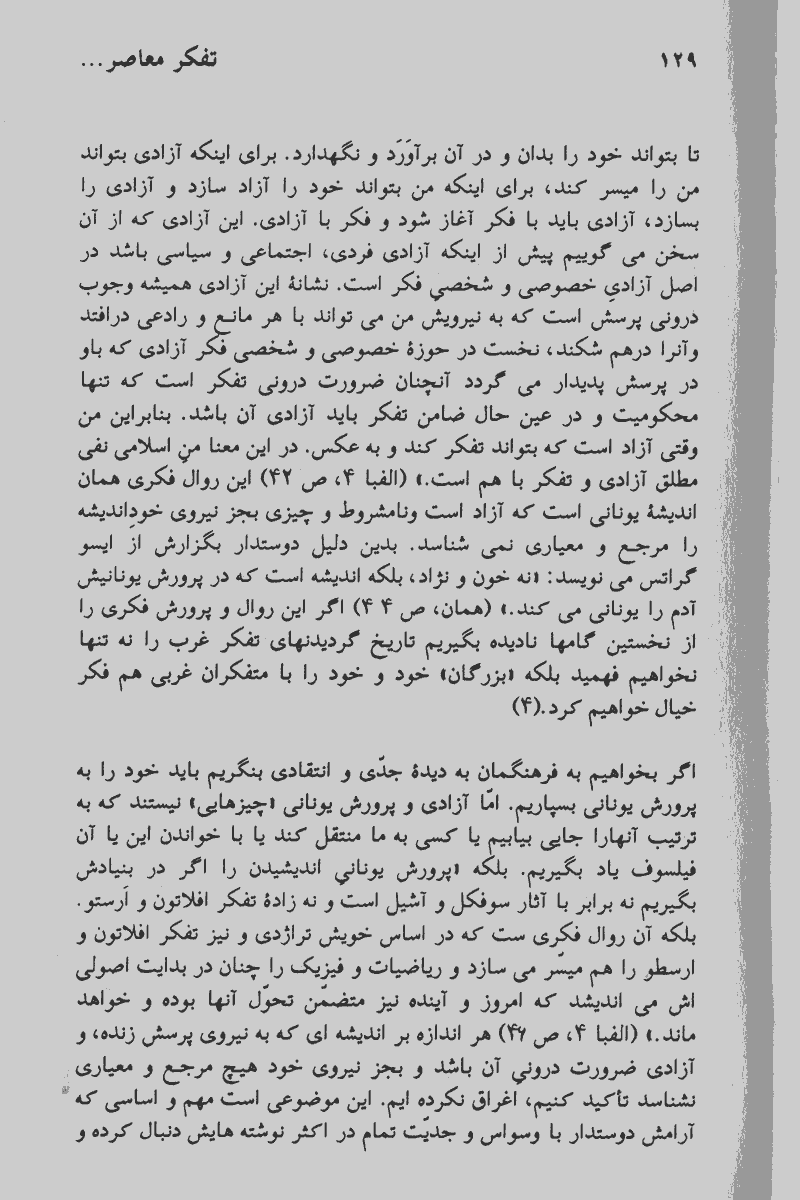 ۱۲۹
تفکر معاصر...
تا بتواند خود را بدان و در آن برآوَرَد و نگهدارد. برای اینکه آزادی بتواند
من را میسر کند، برای اینکه من بتواند خود را آزاد سازد و آزادی را
بسازد، آزادی باید با فکر آغاز شود و فکر با آزادی. این آزادی که از آن
سخن می گوییم پیش از اینکه آزادی فردی، اجتماعی و سیاسی باشد در
اصل آزادیِ خصوصی و شخصیِ فکر است. نشانهٔ این آزادی همیشه وجوب
درونی پرسش است که به نیرویش من می تواند با هر مانع و رادعی درافتد
وآنرا درهم شکند، نخست در حوزهٔ خصوصی و شخصی فکر آزادی که باو
در پرسش پدیدار می گردد آنچنان ضرورت درونی تفکر است که تنها
محکومیت و در عین حال ضامن تفکر باید آزادی آن باشد. بنابراین من
وقتی آزاد است که بتواند تفکر کند و به عکس. در این معنا منِ اسلامی نفی
مطلق آزادی و تفکر با هم است.» (الفبا ۴، ص ۴۲) این روال فکری همان
اندیشهٔ یونانی است که آزاد است ونامشروط و چیزی بجز نیروی خودِاندیشه
را مرجع و معیاری نمی شناسد. بدین دلیل دوستدار بگزارش از ایسو
گراتس می نویسد: «نه خون و نژاد، بلکه اندیشه است که در پرورش یونانیش
آدم را یونانی می کند.» (همان، ص ۴۴) اگر این روال و پرورش فکری را
از نخستین گامها نادیده بگیریم تاریخ گردیدنهای تفکر غرب را نه تنها
نخواهیم فهمید بلکه «بزرگان» خود و خود را با متفکران غربی هم فکر
خیال خواهیم کرد.(۴)
اگر بخواهیم به فرهنگمان به دیدهٔ جدّی و انتقادی بنگریم باید خود را به
پرورش یونانی بسپاریم. امّا آزادی و پرورش یونانی «چیزهایی» نیستند که به
ترتیب آنهارا جایی بیابیم یا کسی به ما منتقل کند یا با خواندن این یا آن
فیلسوف یاد بگیریم. بلکه «پرورش یونانیِ اندیشیدن را اگر در بنیادش
بگیریم نه برابر با آثار سوفکل و آشیل است و نه زادهٔ تفکر افلاتون و اَرستو.
بلکه آن روال فکری ست که در اساس خویش تراژدی و نیز تفکر افلاتون و
ارسطو را هم میسّر می سازد و ریاضیات و فیزیک را چنان در بدایت اصولی
اش می اندیشد که امروز و آینده نیز متضمّن تحوّل آنها بوده و خواهد
ماند.» (الفبا ۴، ص ۴۶) هر اندازه بر اندیشه ای که به نیروی پرسش زنده، و
آزادی ضرورت درونیِ آن باشد و بجز نیروی خود هیچ مرجع و معیاری
نشناسد تأکید کنیم، اغراق نکرده ایم. این موضوعی است مهم و اساسی که
آرامش دوستدار با وسواس و جدیّت تمام در اکثر نوشته هایش دنبال کرده و